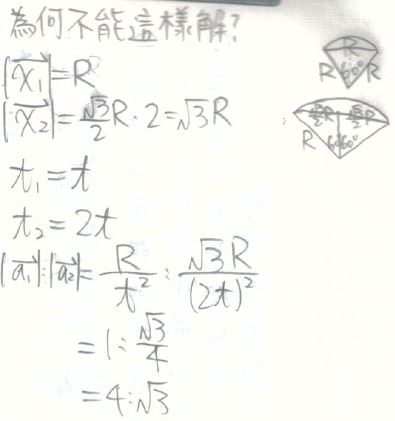 為何不能這樣解?
|x₁⃗|=R
|x₂⃗|=√3/2 R·2=√3R
t₁=t
t₂=2t
|a₁⃗|:|a₂⃗|=R/t² : √3R/(2t)²
=1:√3/4
=4:√3
R
R 60° R
√3/2R √3/2R
R 60° 60°